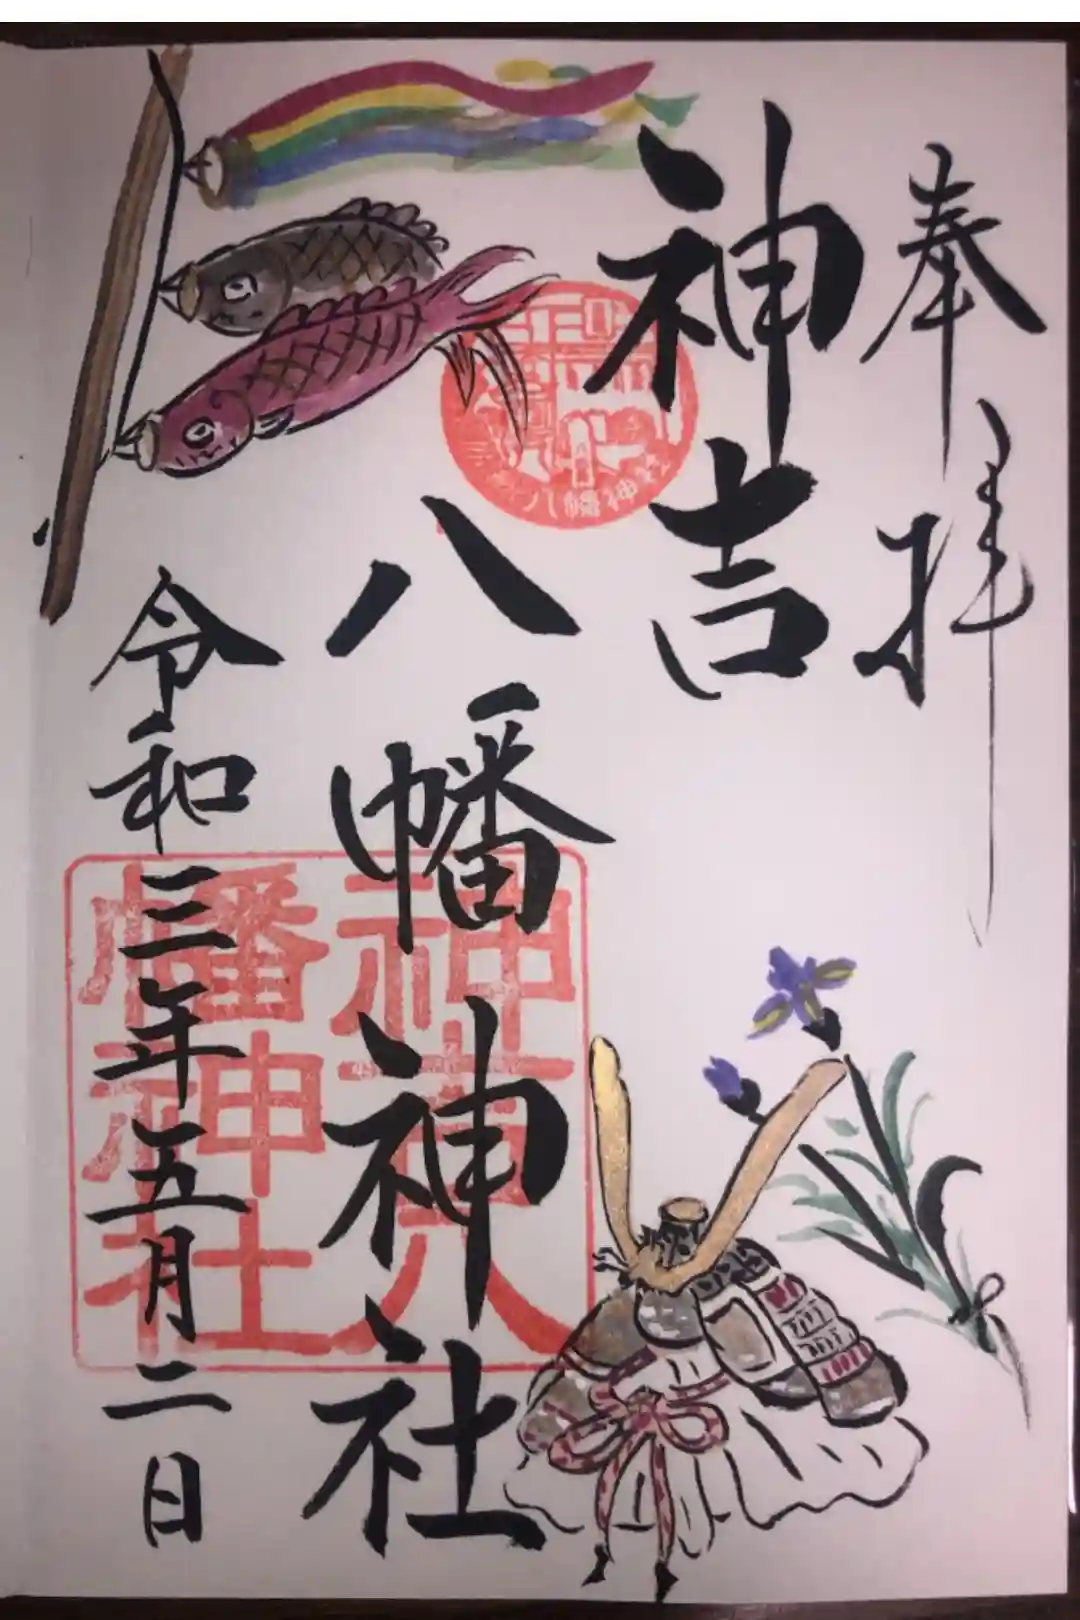 奉拝
神吉
八幡神社
令和三年五月二日
八幡神社
神吉八
幡神社